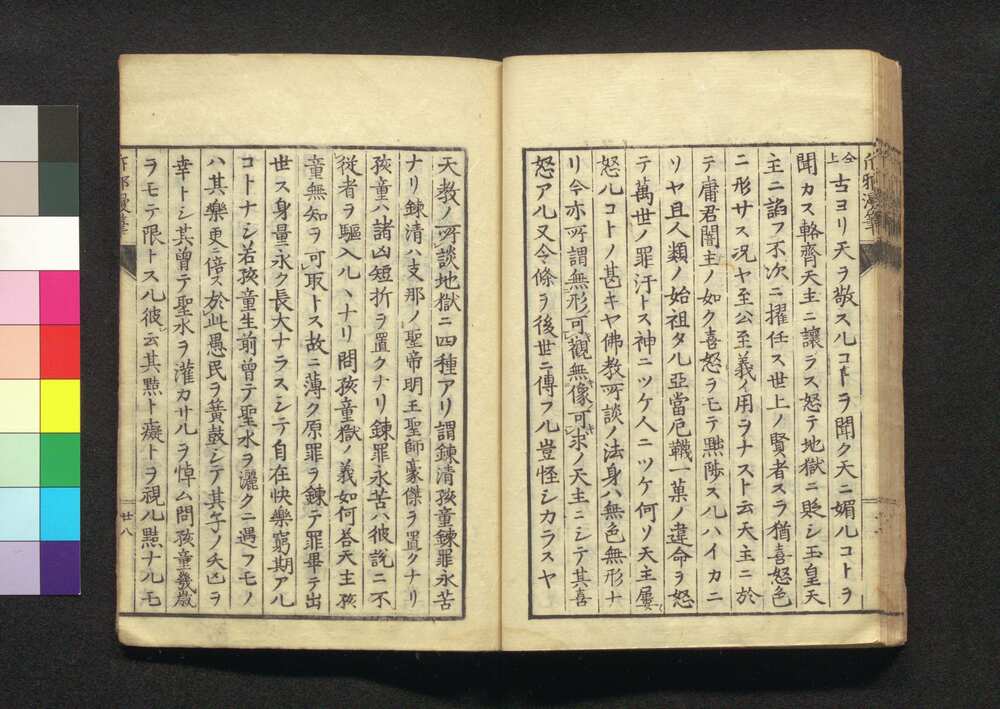 仝上 古ヨリ天ヲ敬スルコトヲ聞ク天ニ媚ルコトヲ
聞カス輅齊天主ニ讓ラス怒テ地獄ニ貶シ玉皇天
主ニ諂フ不次ニ擢任ス世上ノ賢者スラ猶喜怒色
ニ形サス况ヤ至公至義ノ用ヲナスト云天主ニ於
テ庸君闇主ノ如ク喜怒ヲモテ黜陟スルハイカニ
ソヤ且人類ノ始祖タル亞當厄韈一菓ノ違命ヲ怒
テ萬世ノ罪汙トス神ニツケ人ニツケ何ソ天主屢
怒ルコトノ甚キヤ佛教所談ノ法身ハ無色無形ナ
リ今亦所謂無形可觀無像可求ノ天主ニシテ其喜
怒アル又令條ヲ後世ニ傳フル豈怪シカラスヤ
天教ノ所談地獄ニ四種アリ謂鍊清孩童鍊罪永苦
ナリ鍊清ハ支那ノ聖帝明王聖師豪傑ヲ置クナリ
孩童ハ諸凶短折ヲ置クナリ鍊罪永苦ハ彼説ニ不
從者ヲ驅入ルヽナリ問孩童獄ノ義如何答天主孩
童無知ヲ可取トス故ニ薄ク原罪ヲ鍊テ罪畢テ出
世ス身量永ク長大ナラスシテ自在快樂窮期アル
コトナシ若孩童生前曾テ聖水ヲ灑クニ遇フモノ
ハ其樂更ニ倍ス於此愚民ヲ簧鼓シテ其子ノ夭亡ヲ
幸トシ其曾テ聖水ヲ灌カサルヲ悼ム問孩童幾歳
ヲモテ限トスル彼云其黠ト癡トヲ視ル黠ナルモ
斥邪漫筆
廿八